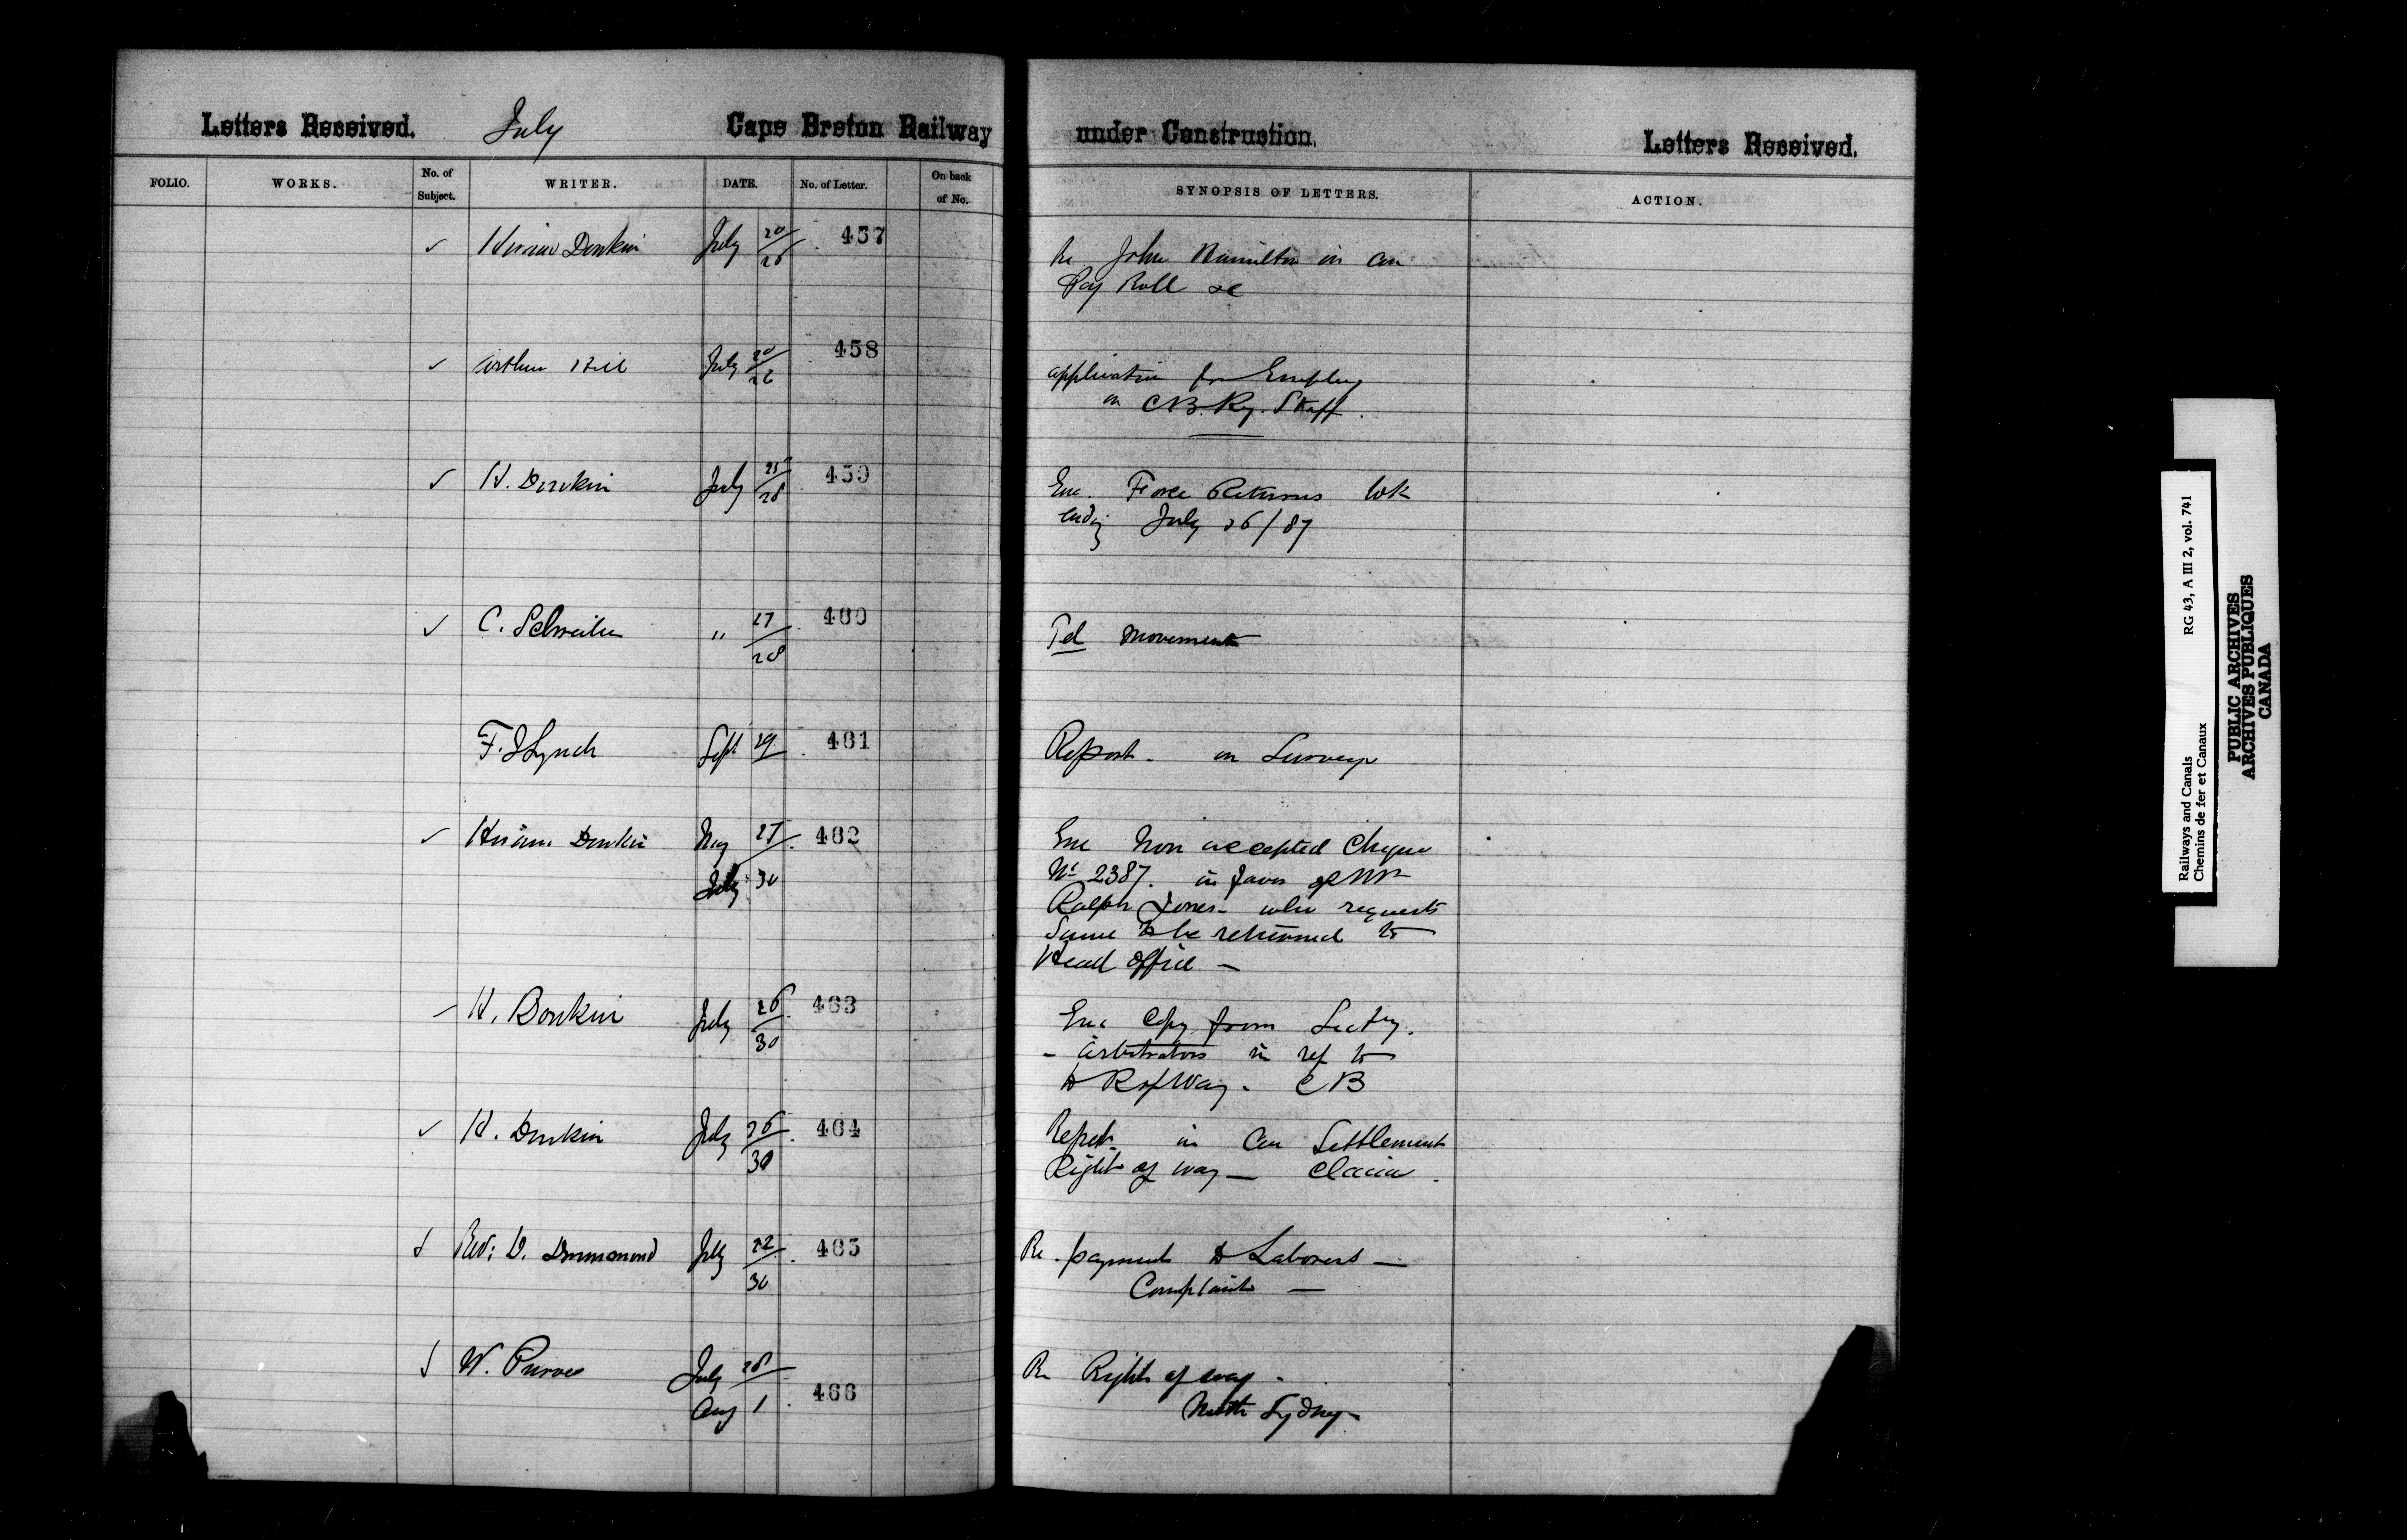 Letters Received. July Cape Breton Railway under Construction. Letters Received.
FOLIO. WORKS. No. of Subject. WRITER. DATE. No. of Letter. On back of No. SYNOPSIS OF LETTERS. ACTION.
✓ Hiram Donkin July 20/26 457 Re John Hamilton in
Pay Roll &c
✓ Arthur Hill July 20/26 458 application for Employ
on C.B. Ry. Staff.
✓ H. Donkin July 25/28 459 Enc. Force Returns Wk
ending July 26/87
✓ C. Schreiber " 27/28 460 Tel movements
F. J Lynch Sept 29 461 Report - on Surveys
✓ Hiram Donkin May 27/ 462 Enc Non accepted Cheque
July 30 No 2387. in favor of Mr
Ralph Jones - who requests
Same to be returned to
Head Office —
✓ H. Donkin July 26/30 463 Enc Copy from Secty.
- Arbitrators in ref to
R of Way. C B
✓ H. Donkin July 26/30 464 Report in Settlement
Right of way — Claim.
✓ Rev: D. Drummond July 22/30 465 Re. payment to Laborers —
Complaint —
✓ W. Purves July 28/ Re Right of way -
Aug 1 466 North Sydney -
Railways and Canals RG 43, A III 2, vol. 741
Chemins de fer et Canaux
PUBLIC ARCHIVES
ARCHIVES PUBLIQUES
CANADA